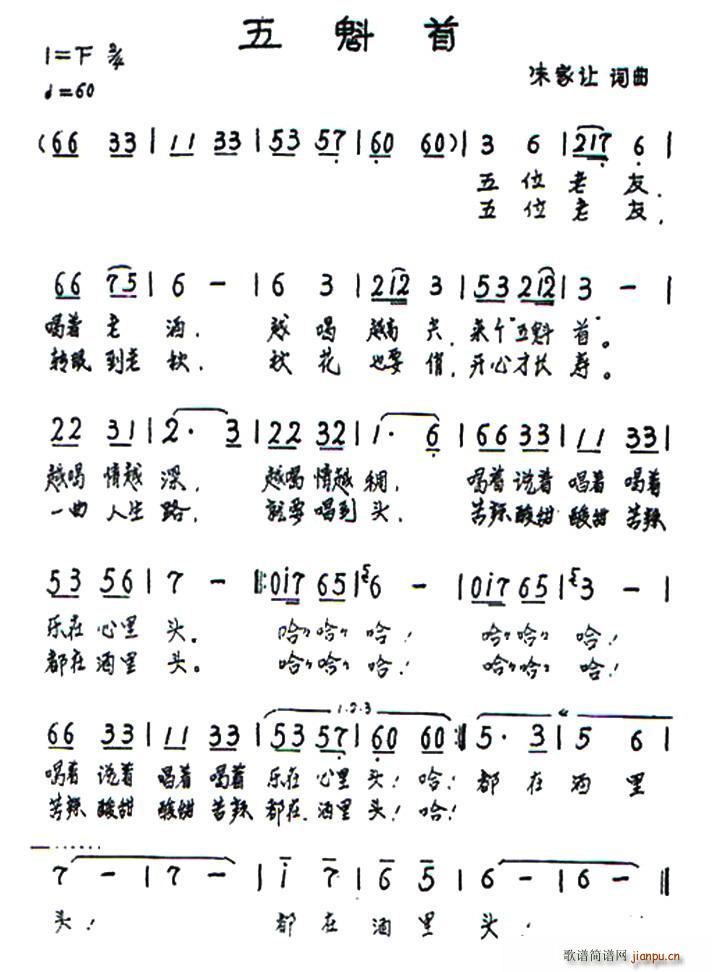 五 魁 首
1=下 2/4
♩=60
朱家让 词曲
(66 33 | 11 33 | 53 57 | 60 60) | 3 6 | 217 6 |
五 位 老 友,
五 位 老 友,
66 75 | 6 - | 6 3 | 212 3 | 53 212 | 3 - |
喝着 老 酒, 越 喝 越高 兴, 来个"五魁 首"。
转眼 到老 秋, 秋 花 也要 俏, 开心才长 寿。
22 31 | 2· 3 | 22 32 | 1· 6 | 66 33 | 11 33 |
越喝 情越 深, 越喝 情越 稠, 喝着 说着 唱着 喝着
一曲 人生 路, 就要 唱到 头, 苦辣 酸甜 酸甜 苦辣
53 56 | 7 - |: 0i7 65 | 6 - | 0i7 65 | 3 - |
乐在 心里 头。 哈哈 哈哈 哈! 哈哈 哈哈 哈!
都在 酒里 头。 哈哈 哈哈 哈! 哈哈 哈哈 哈!
66 33 | 11 33 | 53 57 | 60 60 :| 5· 3 | 5 6 |
1·2·3
喝着 说着 唱着 喝着 乐在 心里 头! 哈! 都 在 酒 里
苦辣 酸甜 酸甜 苦辣 都在 酒里 头! 哈!
7 - | 7 - | i 7 | 6 5 | 6 - | 6 - ‖
头! 都 在 酒 里 头!
歌谱简谱网 jianpu.cn